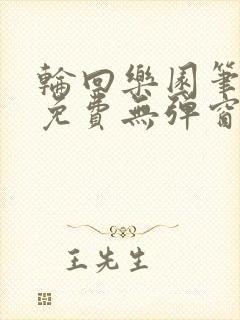 輪回樂園筆
免費無彈窗
王先生